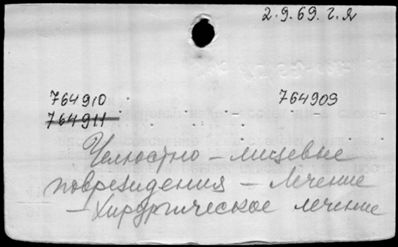 2.9.69.г.Я
764910 764909
764911
Челюстно - лицевые
повреждения - Лечение
- Хирургическое лечение